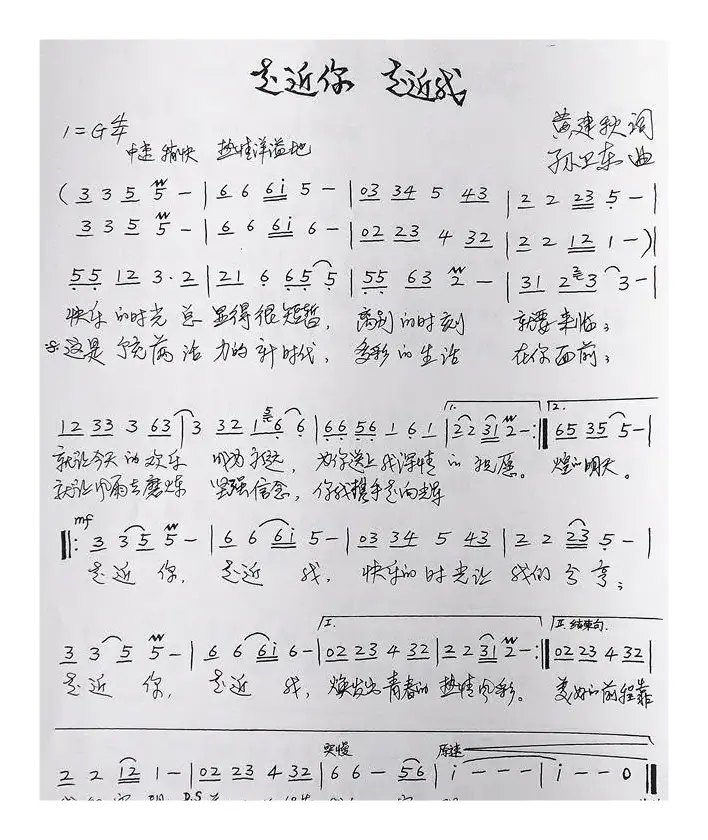 走近你 走近我
1=G 4/4
黄建秋词
中速 稍快 热情洋溢地
孙卫东曲
( 3 3 5 5 - | 6 6 6 i 5 - | 03 34 5 43 | 2 2 23 5 - |
3 3 5 5 - | 6 6 6i 6 - | 02 23 4 32 | 2 2 12 1 - )|
55 12 3·2 | 21 6 65 5 | 55 63 2 - | 31 2 3 3 - |
快乐的时光总显得很短暂, 离别的时刻 就要来临;
※这是 充满活力的新时代, 多彩的生活 在你面前;
12 33 3 63 | 3 32 1 6 6 | 66 56 1 6 1 | 1. 22 31 2 - :‖ 2. 65 35 5 - |
就让今天的欢乐 成为永远, 为你送上我深情的祝愿。 煌的明天。
就让风雨去磨炼 坚强信念, 你我携手走向辉
mf
‖: 3 3 5 5 - | 6 6 6i 5 - | 03 34 5 43 | 2 2 23 5 - |
走近 你, 走近 我, 快乐的时光让 我们分享;
3 3 5 5 - | 6 6 6i 6 - | I. 02 23 4 32 | 2 2 31 2 - :‖ II. 结束句. 02 23 4 32 |
走近 你, 走近 我, 焕发出青春的热情风彩。 美好的前程靠
突慢 原速
2 2 12 1 - | 02 23 4 32 | 6 6 - 56 | i - - - | i - - 0 ‖
D.S